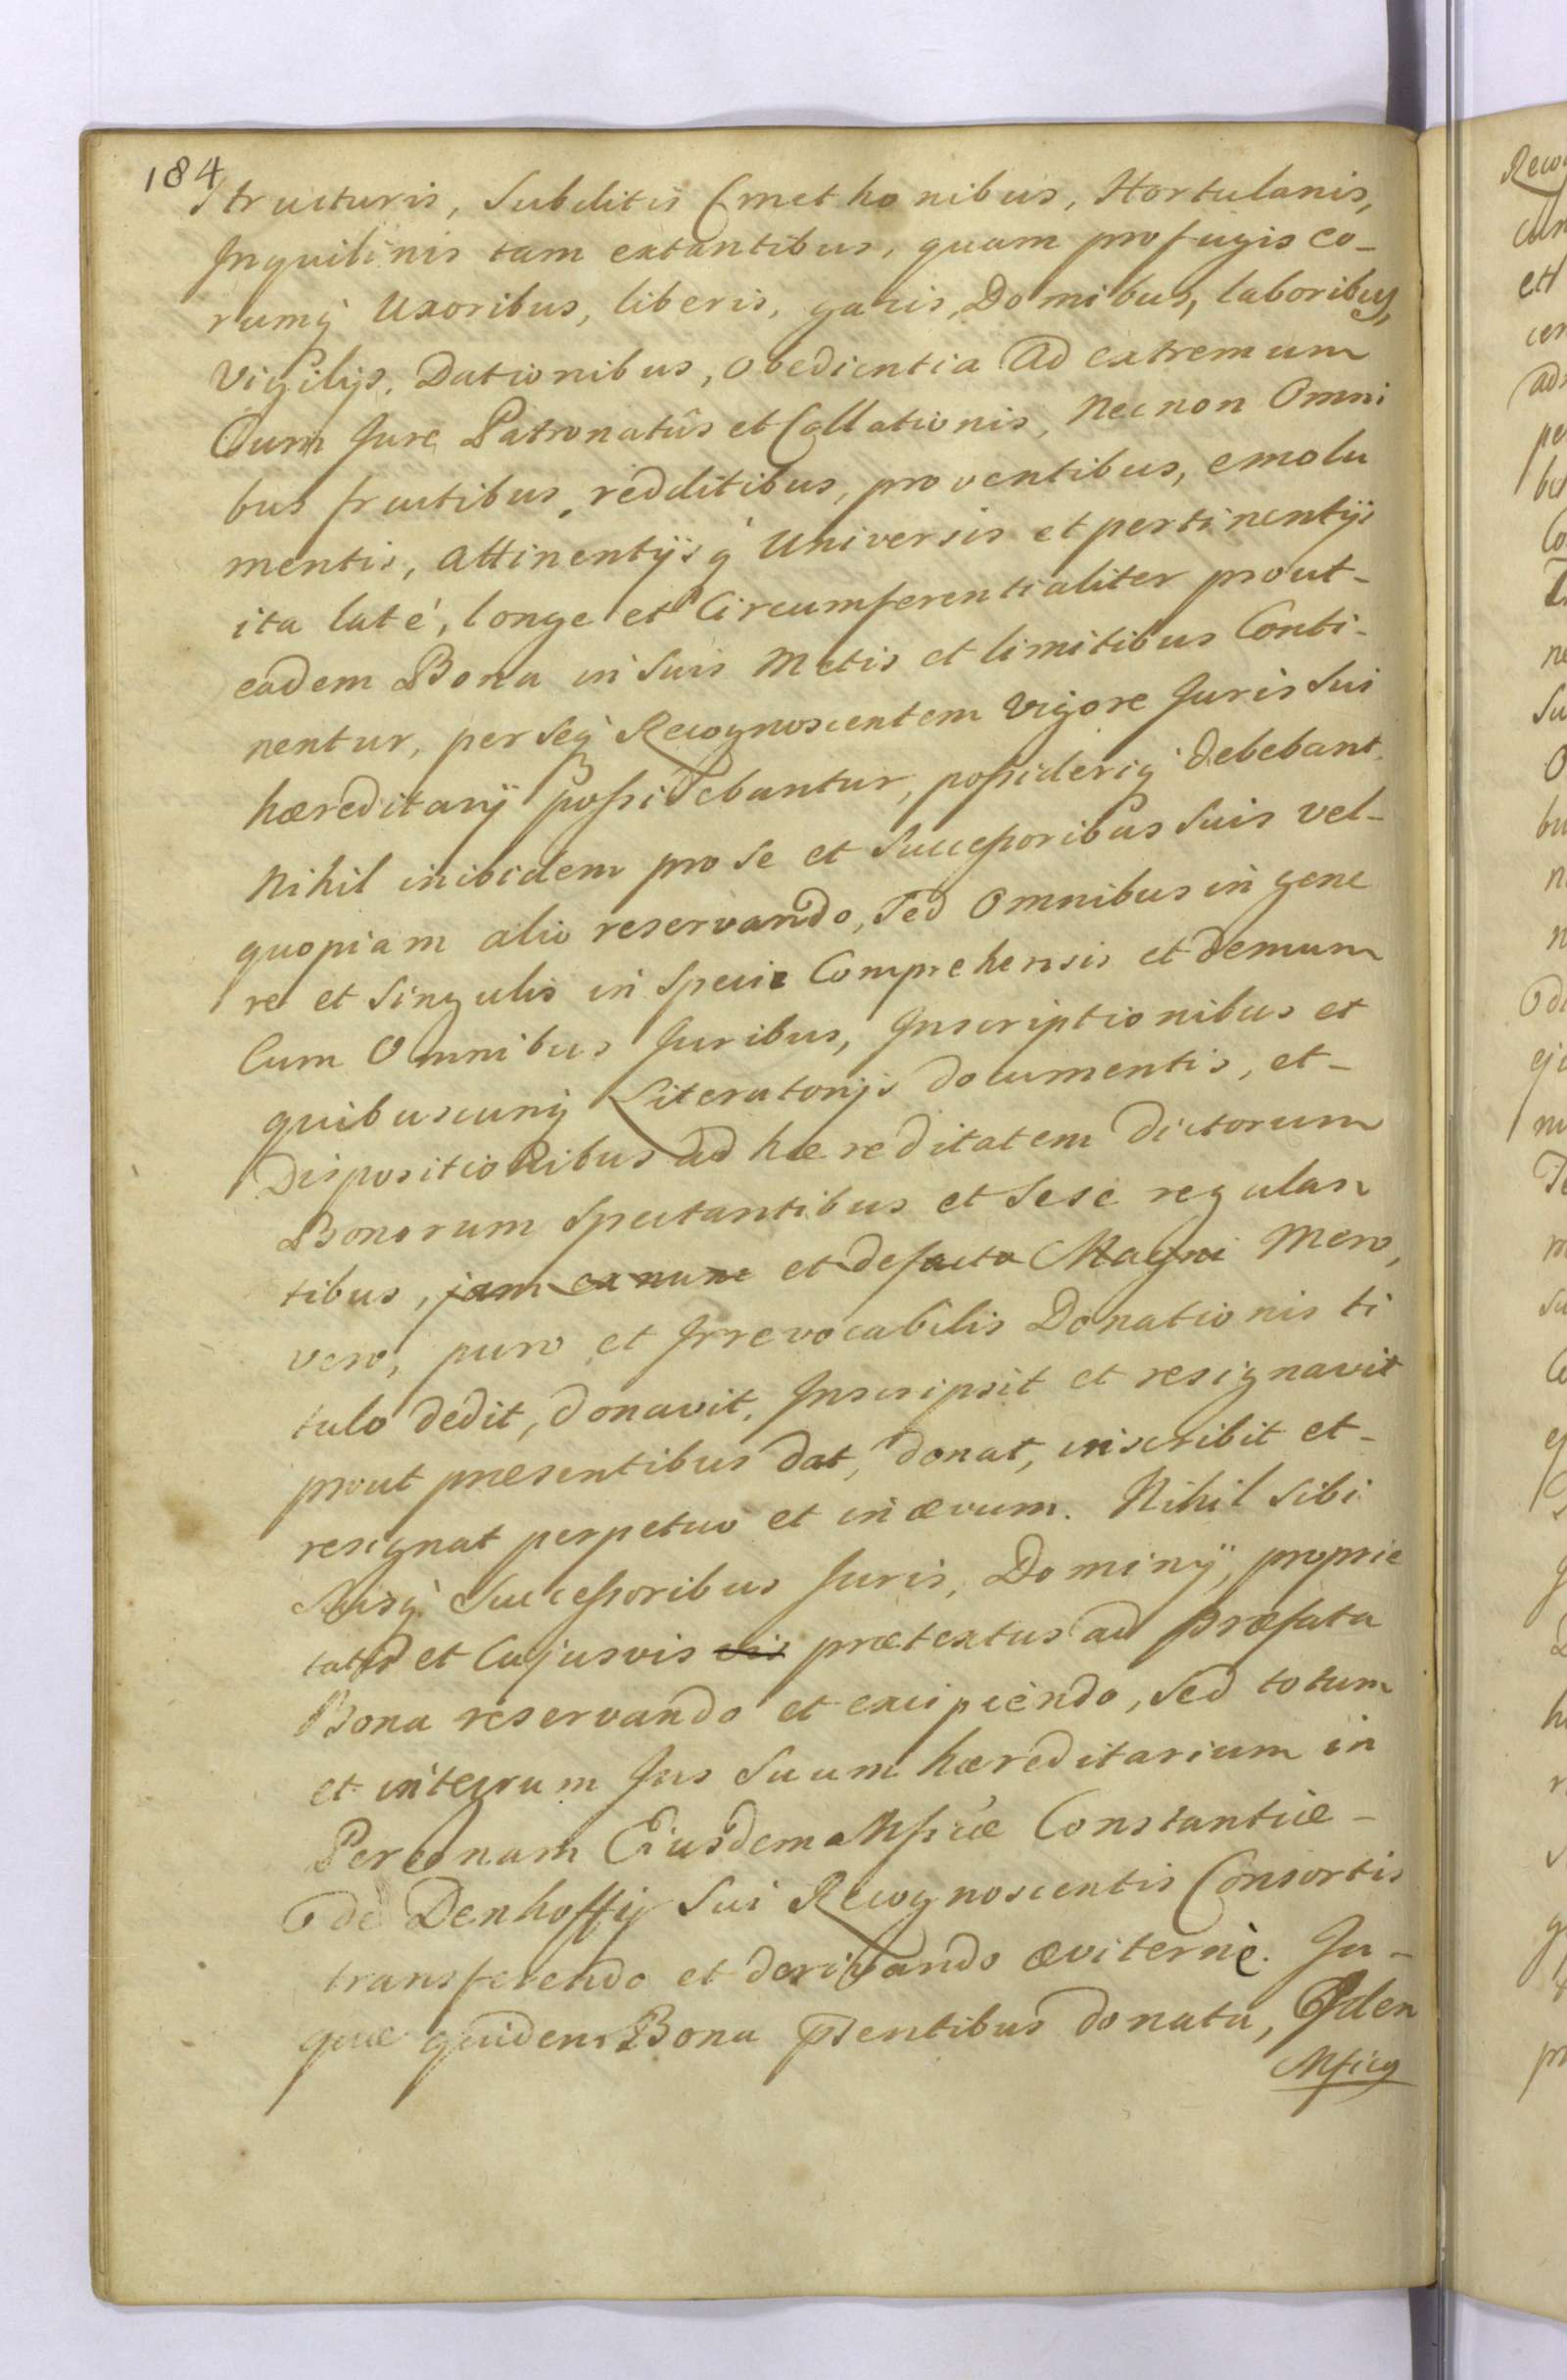 184
Structuris, Subditis Cmethonibus, Hortulanis,
Inquilinis tam extantibus, quam profugis eo-
rumq́ Uxoribus, liberis, gazis, Domibus, laboribus,
Vigilijs, Dationibus, obedientia ad extremum
Cum Jure Patronatûs et Collationis, Necnon Omni
bus fructibus, redditibus, proventibus, emolu
mentis, attinentijsq́ Universis et pertinentijs
ita laté, longe et Circumferentialiter prout-
eadem Bona in suis Metis et limitibus Conti-
nentur, per seq́ Recognoscentem Vigore Juris sui
hæreditarij possidebantur, possideriq́ debebant.
Nihil inibidem pro se et Successoribus suis vel-
quopiam alio reservando, sed Omnibus in gene
re et singulis in specie Comprehensis et demum
Cum Omnibus Juribus, Inscriptionibus et
quibuscunq́ Literatorijs documentis, et-
Dispositionibus ad hæreditatem dictorum
Bonorum spectantibus et sese regulan
tibus, jam ex nunc et defacto Magni Mero,
vero, puro et Irrevocabilis Donationis ti
tulo dedit, donavit, Inscripsit et resignavit
prout præsentibus dat, donat, inscribit et-
resignat perpetuo et in ævum. Nihil sibi
suisq́ Successoribus Juris, Dominij, proprie
tatis et Cujusvis vis prætextus ad præfata
Bona reservando et excipiendo, sed totum
et integrum Jus suum hæreditarium in
Personam Eiusdem Mficæ Constantiæ-
de Denhoffij sui Recognoscentis Consortis
transferendo et derivando æviternè. In-
quæ quidem Bona pſentibus donata, Eidem
Mficæ
Reco